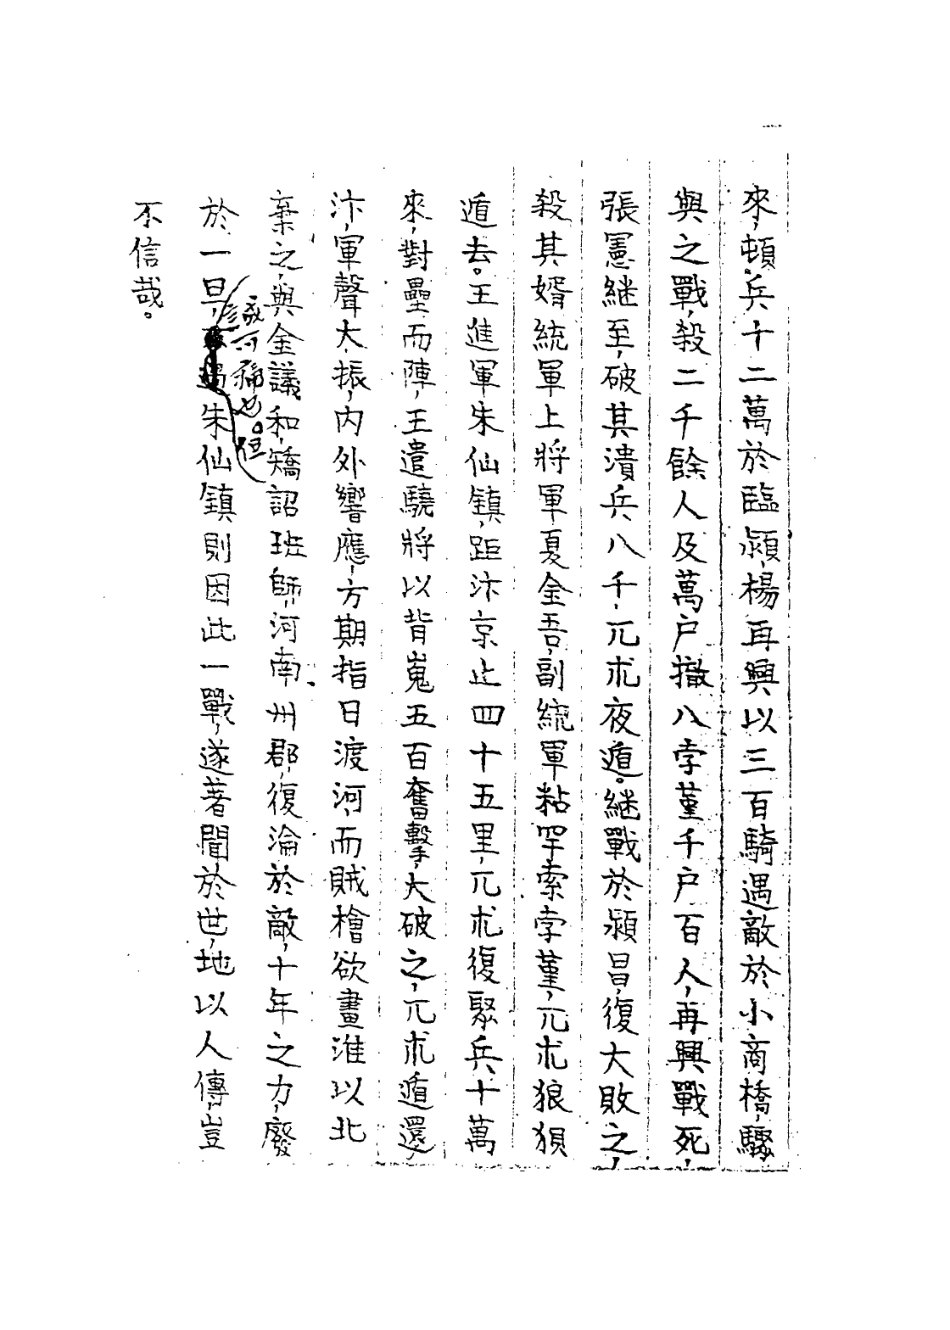 來，頓兵十二萬於臨潁，楊再興以三百騎遇敵於小商橋，驟
與之戰，殺二千餘人及萬户撒八孛堇千户百人，再興戰死，
張憲継至，破其潰兵八千，兀朮夜遁。継戰於潁昌，復大敗之，
殺其婿統軍上將軍夏金吾，副統軍粘罕索孛堇，兀朮狼狽
遁去。王進軍朱仙鎮，距汴京止四十五里，兀朮復聚兵十萬
來，對壘而陣，王遣驍將以背嵬五百奮擊，大破之，兀朮遁還
汴，軍聲大振，内外響應，方期指日渡河，而賊檜欲畫淮以北
棄之，與金議和，矯詔班師，河南州郡，復淪於敵，十年之力，廢
於一旦，誠可痛也。但朱仙鎮則因此一戰，遂著聞於世，地以人傳，豈
不信哉。